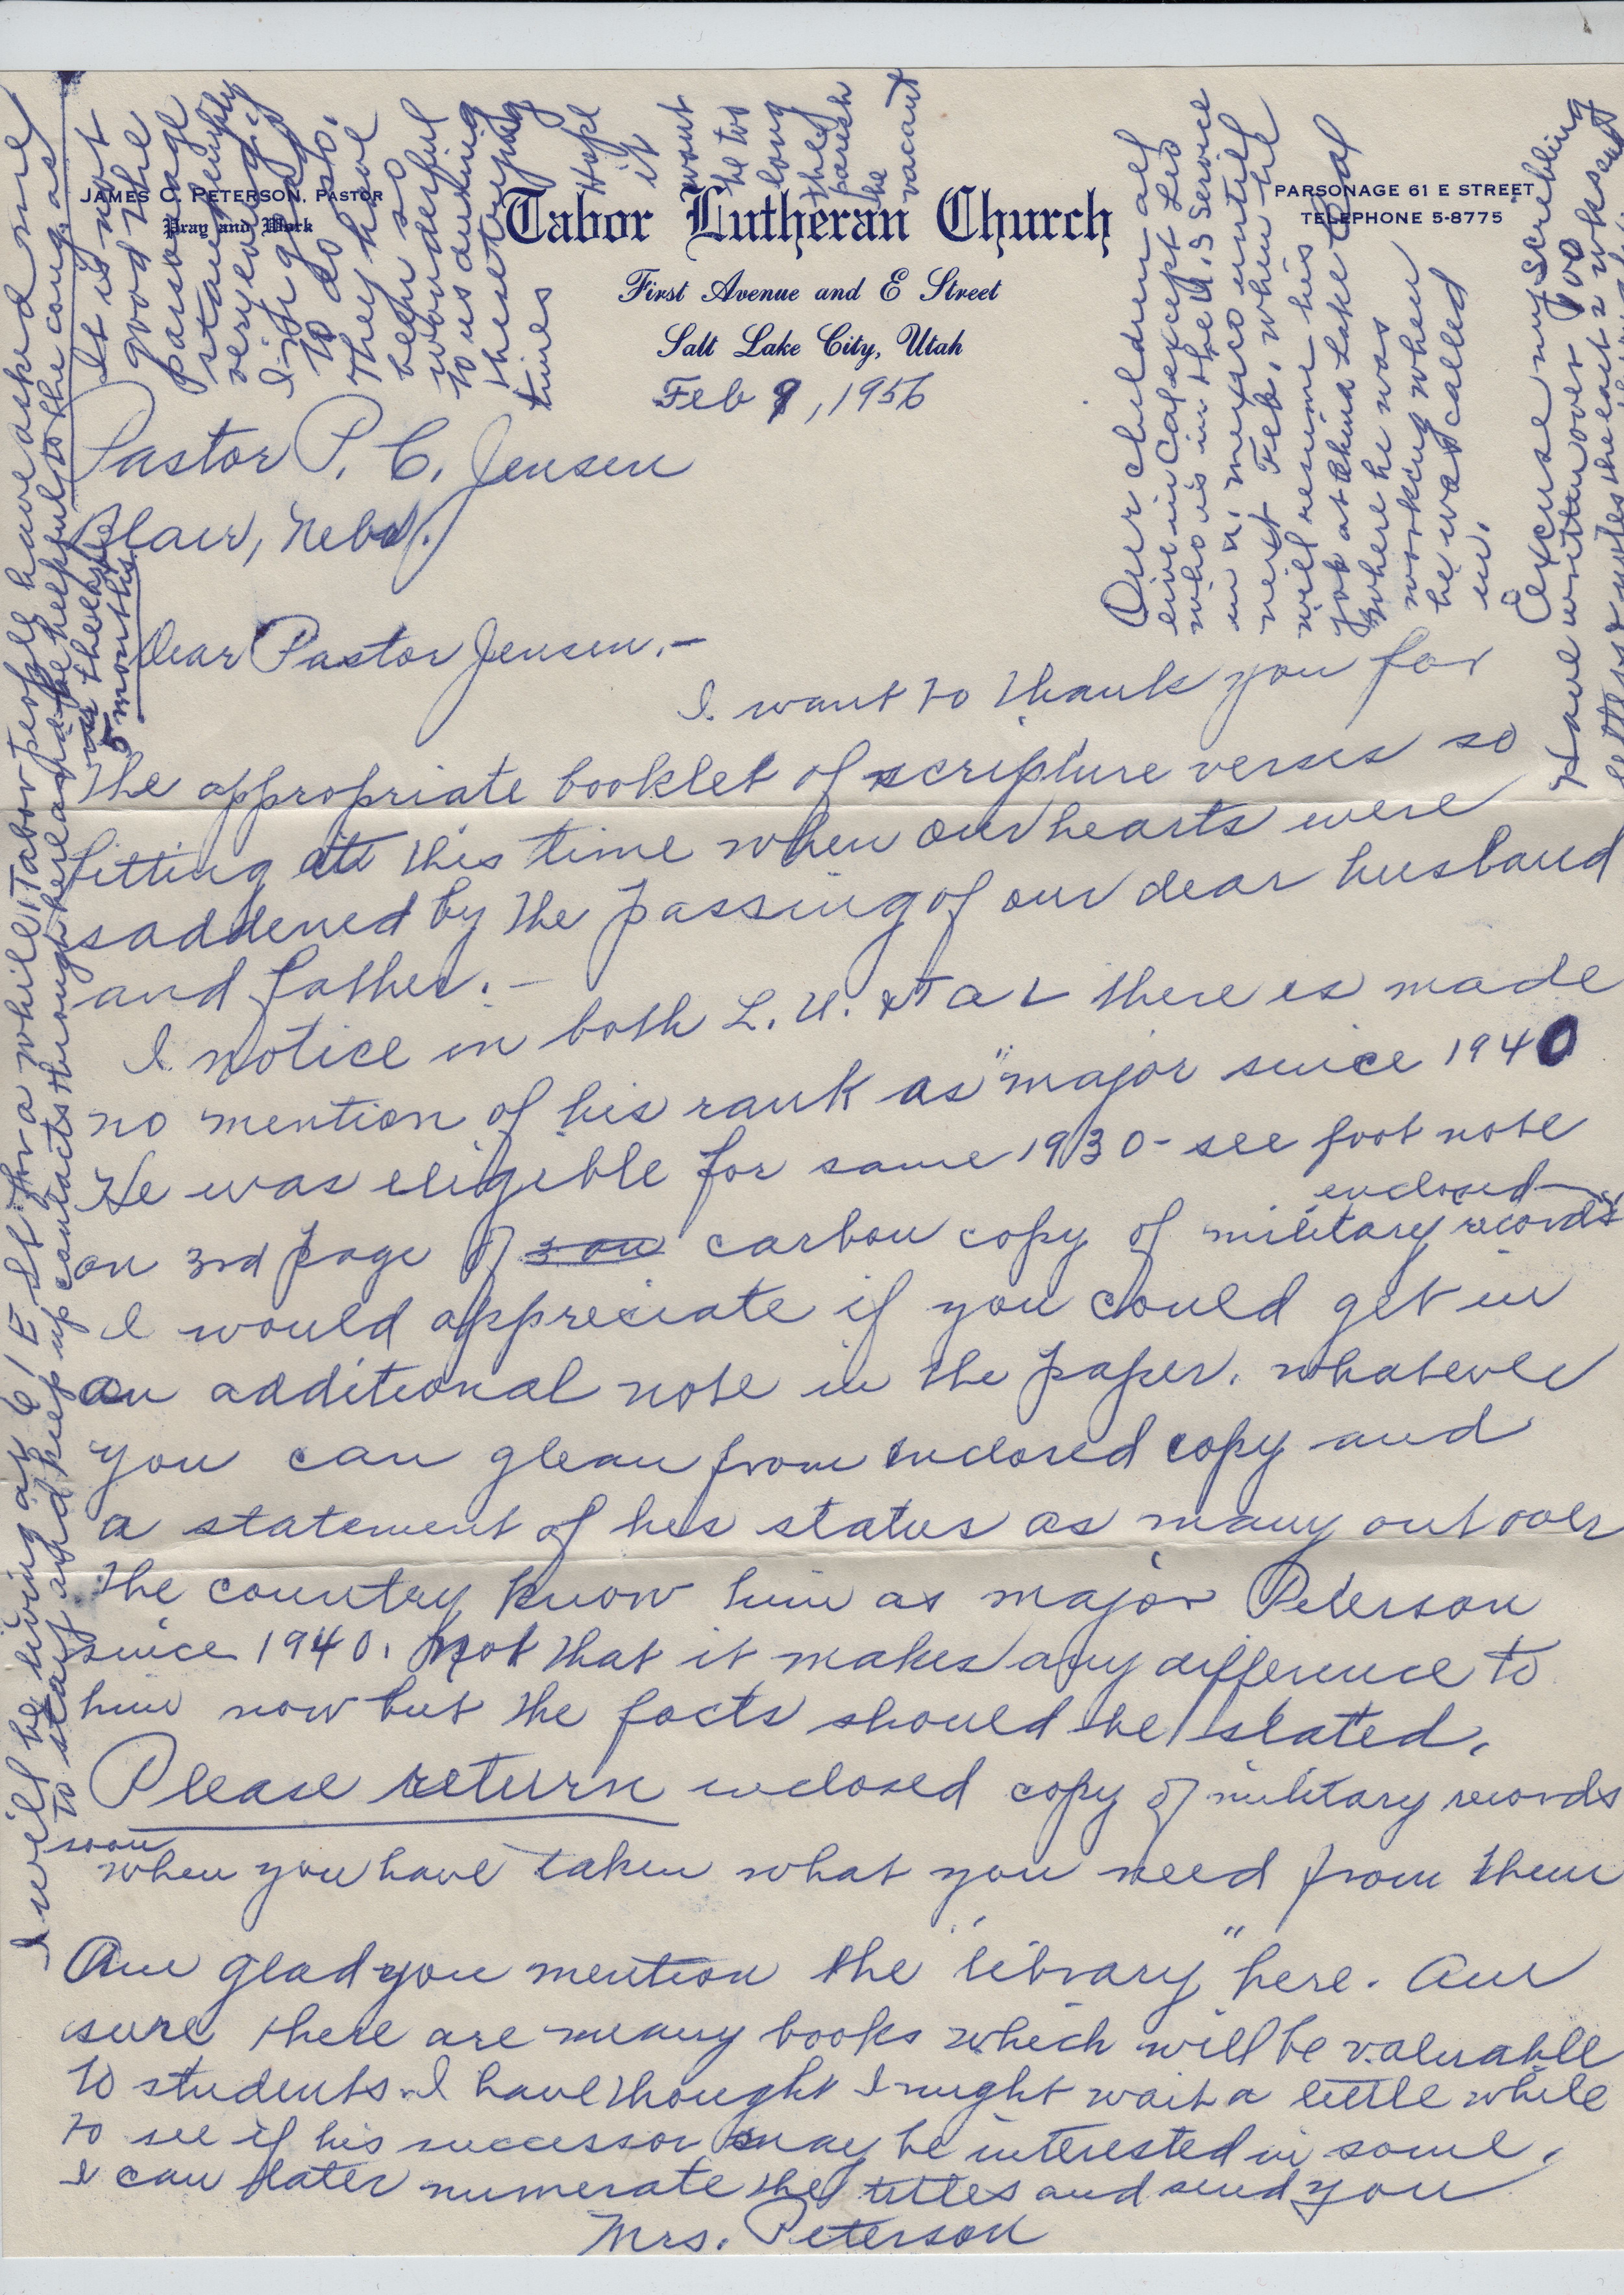 JAMES C. PETERSON, PASTOR
Pray and Work
Tabor Lutheran Church
First Avenue and E Street
Salt Lake City, Utah
PARSONAGE 61 E STREET
TELEPHONE 5-8775
Feb 9, 1956
Pastor P. C. Jensen
Blair, Nebr.
Dear Pastor Jensen,-
I want to thank you for
the appropriate booklet of scripture verses so
fitting at this time when our hearts were
saddened by the passing of our dear husband
and father.-
I notice in both L. U. & A L there is made
no mention of his rank as "major since 1940
He was eligible for same 1930 - see foot note
enclosed
on 3rd page of carbon copy of military records
I would appreciate if you could get in
an additional note in the paper. whatever
you can glean from enclosed copy and
a statement of his status as many out over
the country know him as major Peterson
since 1940. Not that it makes any difference to
him now but the facts should be stated.
Please return enclosed copy of military records
soon
when you have taken what you need from them
Am glad you mention the "library" here. Am
sure there are many books which will be valuable
to students. I have thought I might wait a little while
to see if his successor may be interested in some.
I can later numerate the titles and send you
Mrs. Peterson
I will be living at 61 E St for a while. Tabor people have asked me
to stay and keep up contacts through here and be helpful to the cong. as
5 months
It is not
good the
parsonage
stand empty
very long if
They have
been so
wonderful
to us during
these trying
times
Hope
it
wont
be too
long
the
parish
be
vacant
Our children all
live in Calif except Leo
who is in the U.S Service
in N. Mexico until
next Feb, when he
will resume his
job at China Lake Calif
where he was
working when
he was called
in.
Excuse my scribbling
Have written over 100
letters & notes the last 2 wks